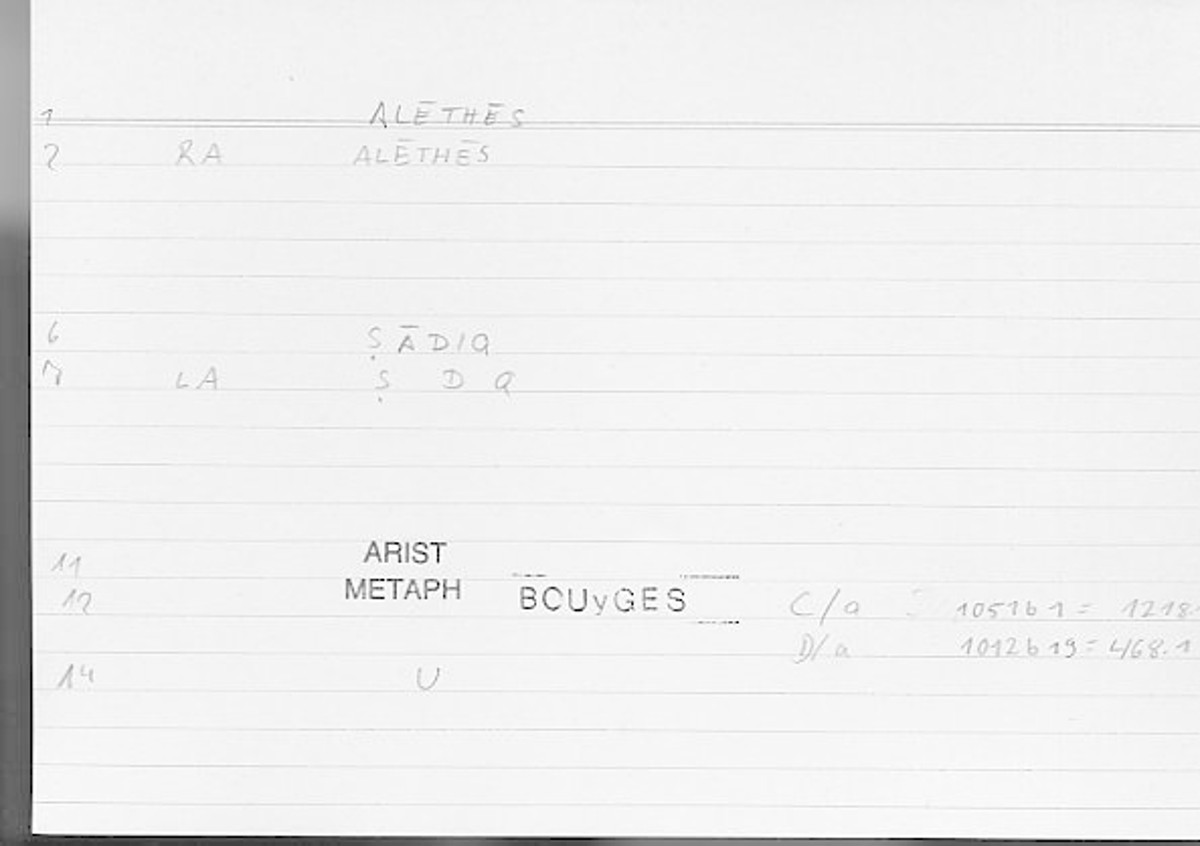 1 ALĒTHĒS
2 RA ALĒTHĒS
6 ṢĀDIQ
7 LA Ṣ D Q
11 ARIST
12 METAPH BOUyGES C/a 1051b1 = 1218
D/a 1012b19 = 468.1
14 U